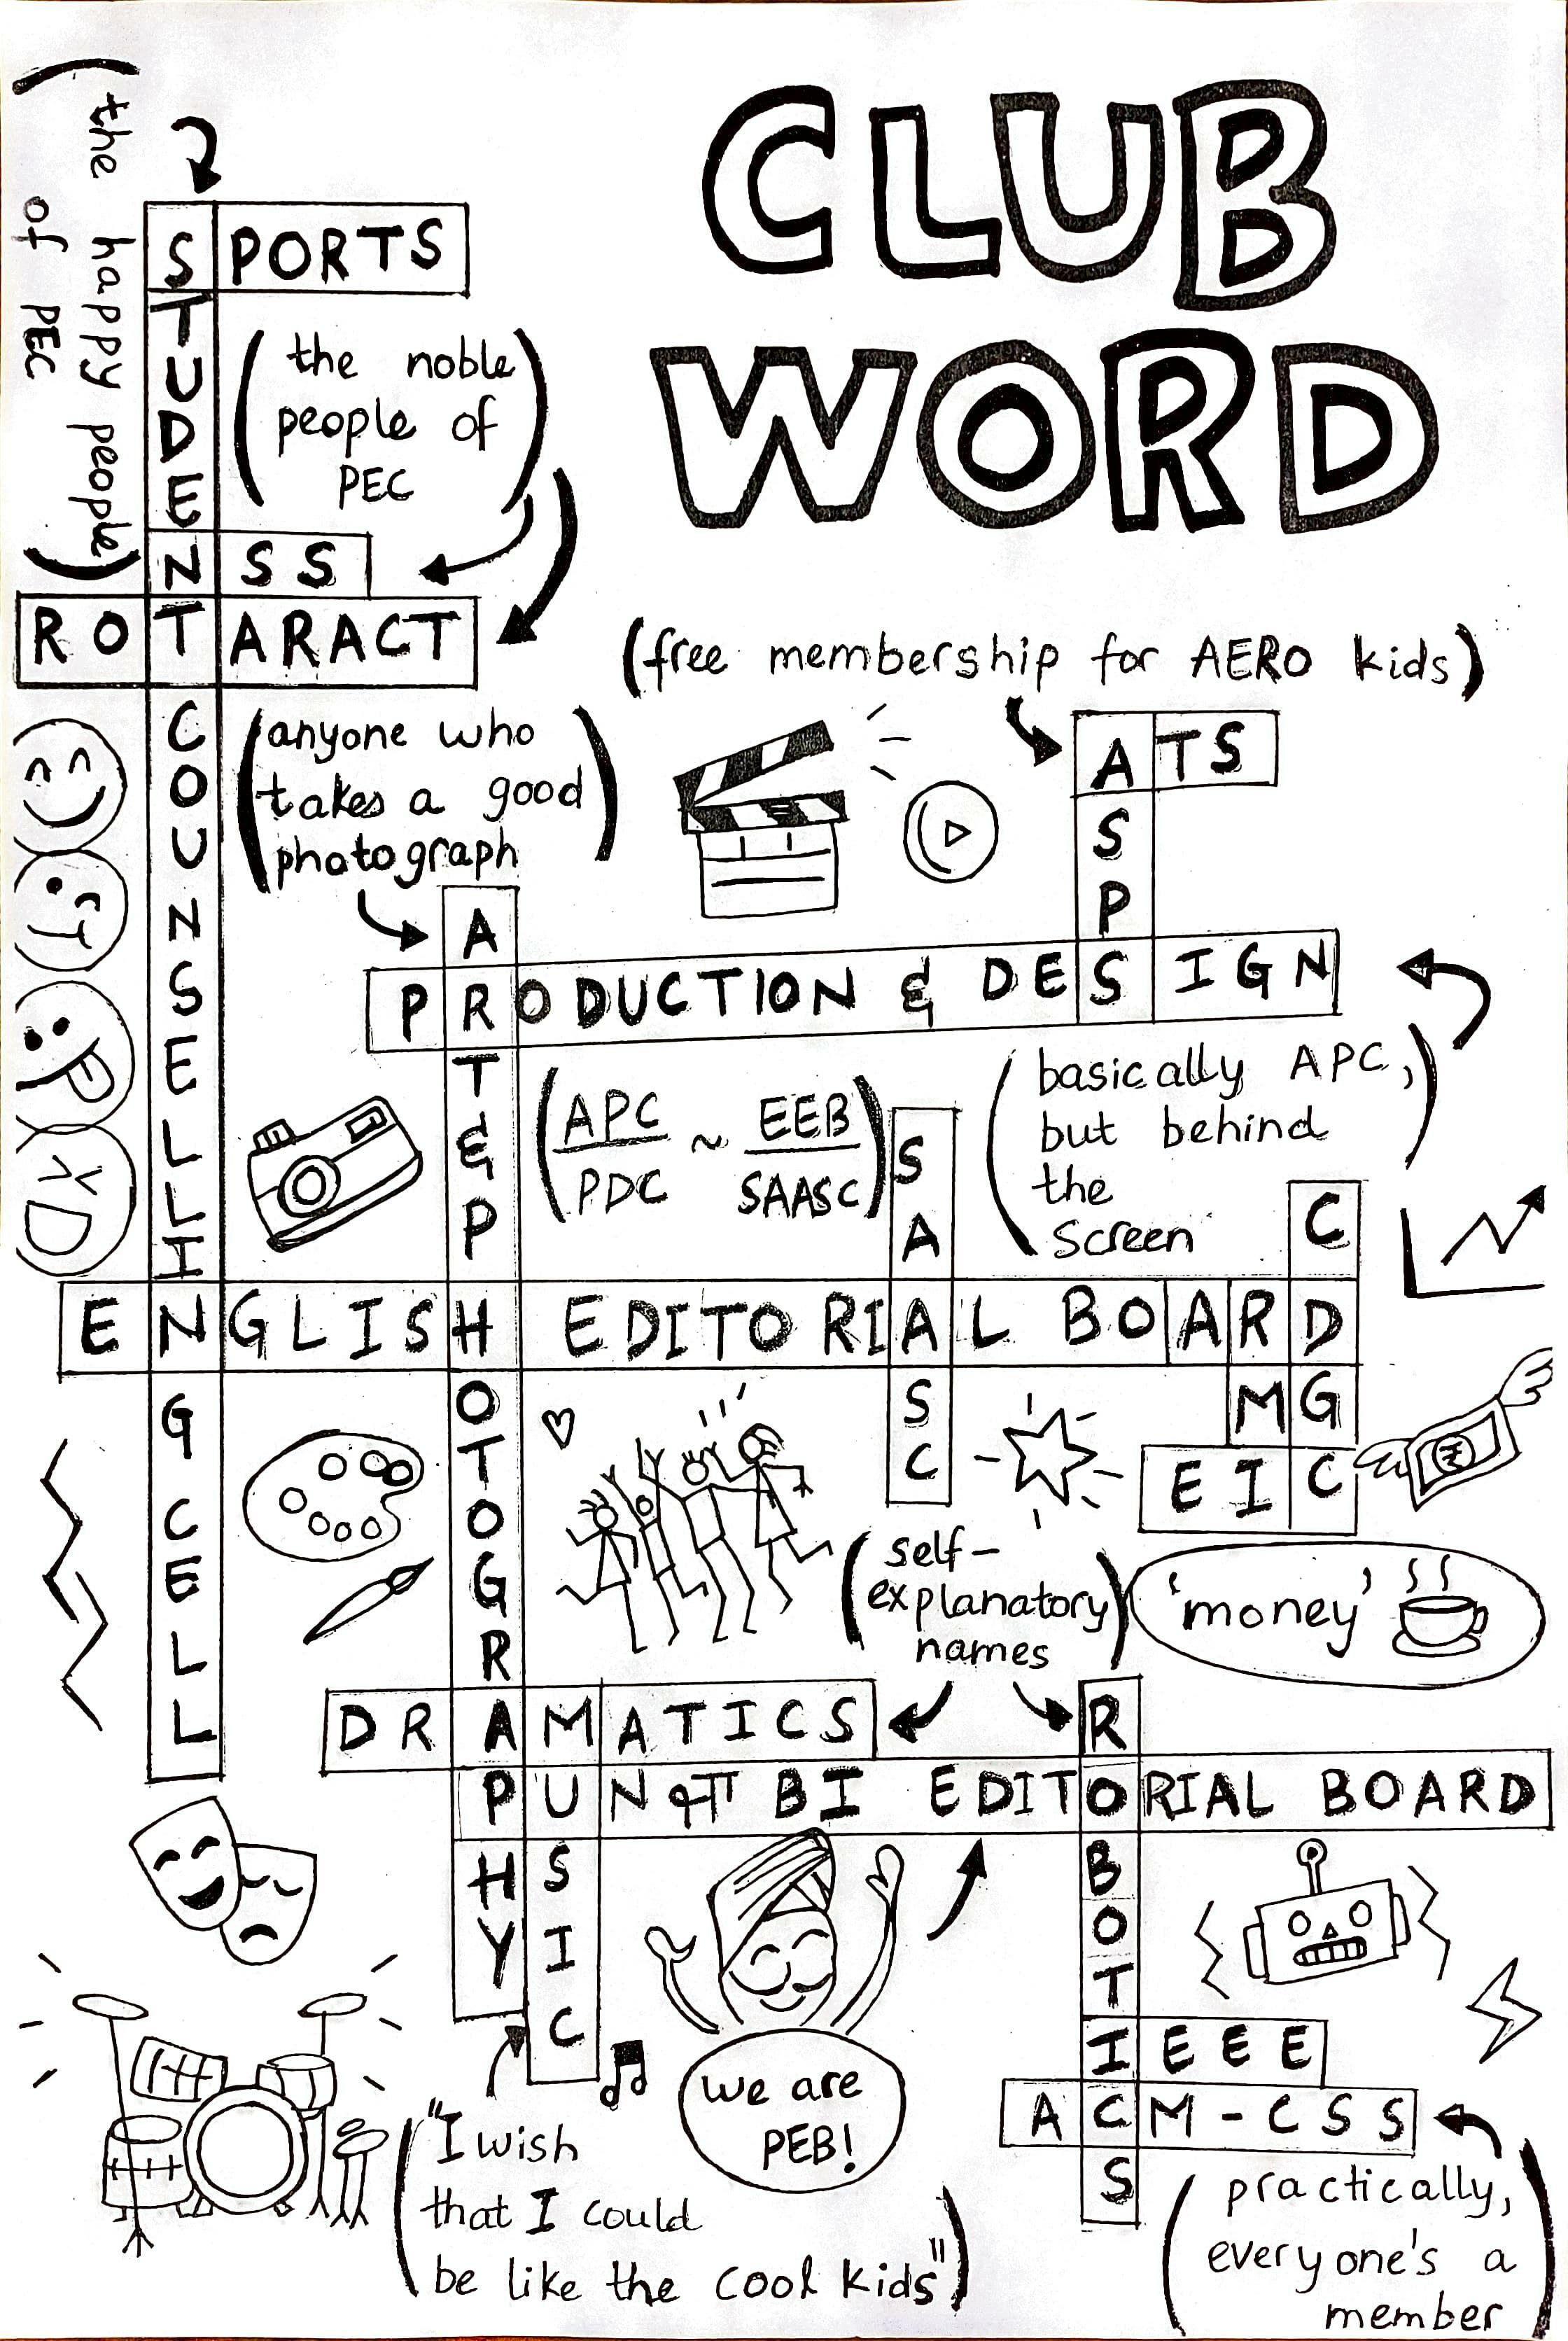 CLUB
WORD
(the happy people)
of PEC
SPORTS
STUDENT COUNSELLING CELL
(the noble
people of
PEC)
NSS
ROTARACT
(free membership for AERO kids)
ATS
ASPS
(anyone who
takes a good
photograph)
ART & PHOTOGRAPHY
PRODUCTION & DESIGN
(APC/PDC ~ EEB/SAASC)
(basically APC,
but behind
the
screen)
SAASC
CDGC
ENGLISH EDITORIAL BOARD
RMI
EIC
(self-
explanatory
names)
'money'
DRAMATICS
MUSIC
ROBOTICS
PUNਜਾBI EDITORIAL BOARD
XD
IEEE
ACM-CSS
we are
PEB!
("I wish
that I could
be like the cool kids")
(practically,
everyone's a
member)